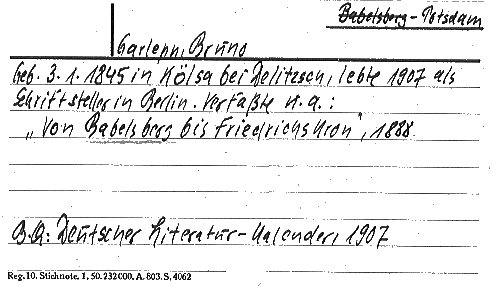 Babelsberg - Potsdam
Garlepp, Bruno
Geb. 3. 1. 1845 in Kölsa bei Delitzsch, lebte 1907 als
Schriftsteller in Berlin. Verfaßte u. a.:
„Von Babelsberg bis Friedrichskron", 1888
B.Q.: Deutscher Literatur-Kalender, 1907
Reg. 10. Stichnote. 1, 50. 232000. A. 803. S. 4062